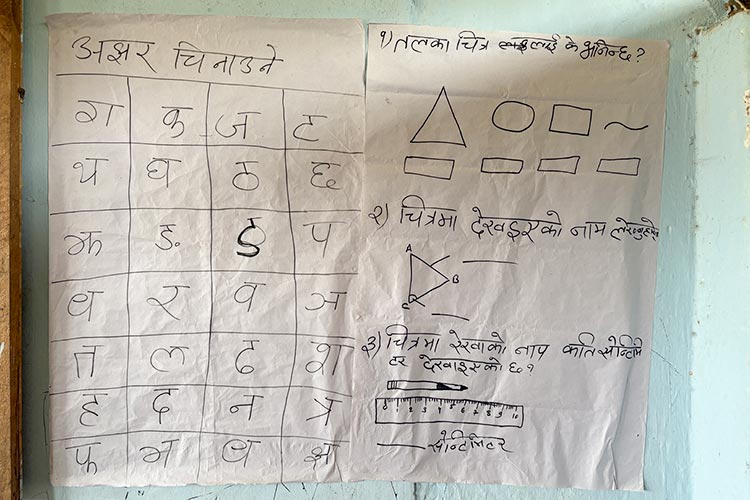 अक्षर चिनाउने
ग क ज ट
थ घ ठ छ
झ ङ ड प
ध र व ञ
त ल ढ श
ह द न त्र
फ भ ध क्ष
१) तलका चित्र लाई के भनिन्छ?
२) चित्रमा देखाइएको नाम लेख्नुहोस
A
B
C
३) चित्रमा रेखाको नाप कति सेन्टिमि
टर देखाइएको छ?
0 1 2 3 4 5 6 7 8 9 10
सेन्टिमिटर